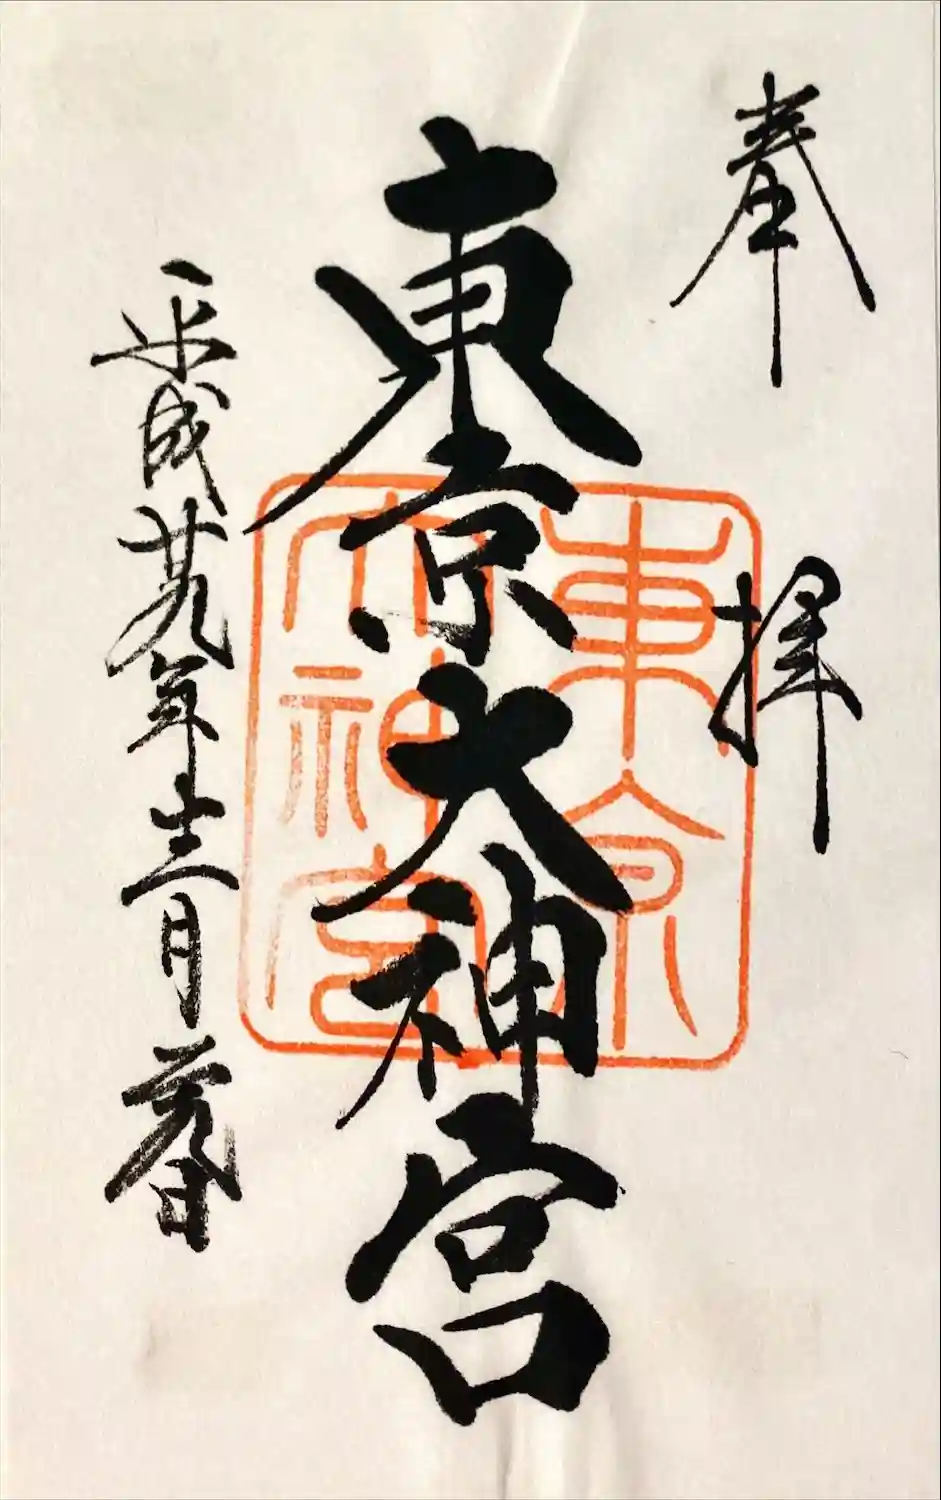 奉拝
東京大神宮
平成廿九年十二月廿九日
東京
大神宮